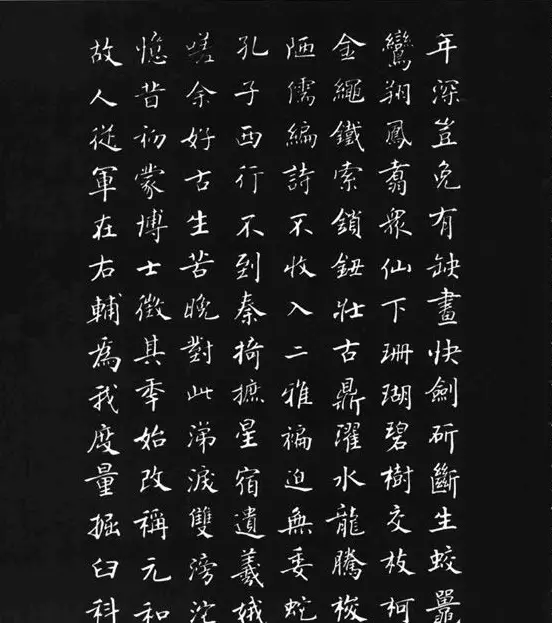 年深豈免有缺畫快劍斫斷生蛟鼉
鸞翔鳳翥衆仙下珊瑚碧樹交枝柯
金繩鐵索鎖鈕壯古鼎濯水龍騰梭
陋儒編詩不收入二雅褊迫無委蛇
孔子西行不到秦掎摭星宿遺羲娥
嗟余好古生苦晚對此涕淚雙滂沱
憶昔初蒙博士徵其秊始改稱元和
故人從軍在右輔為我度量掘臼科